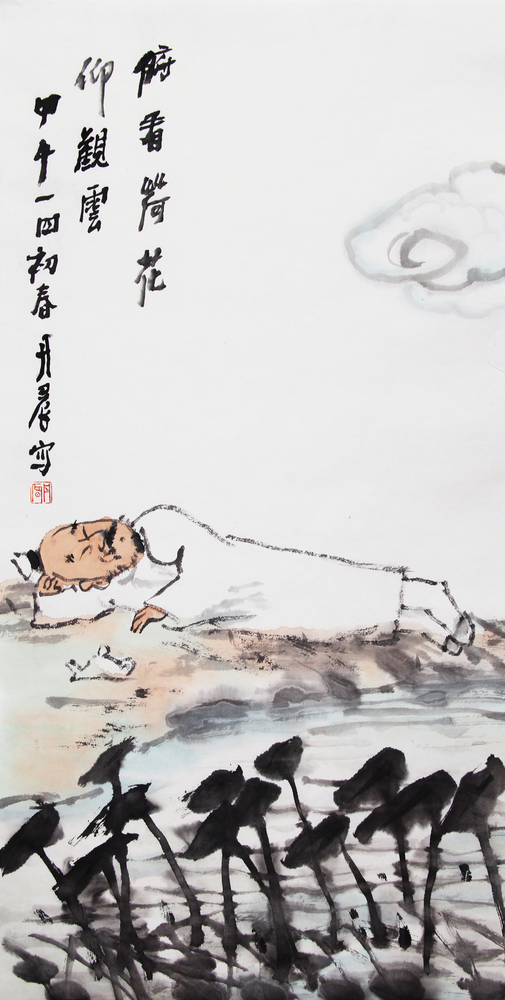 俯看荷花
仰觀雲
甲午一四初春月晨写